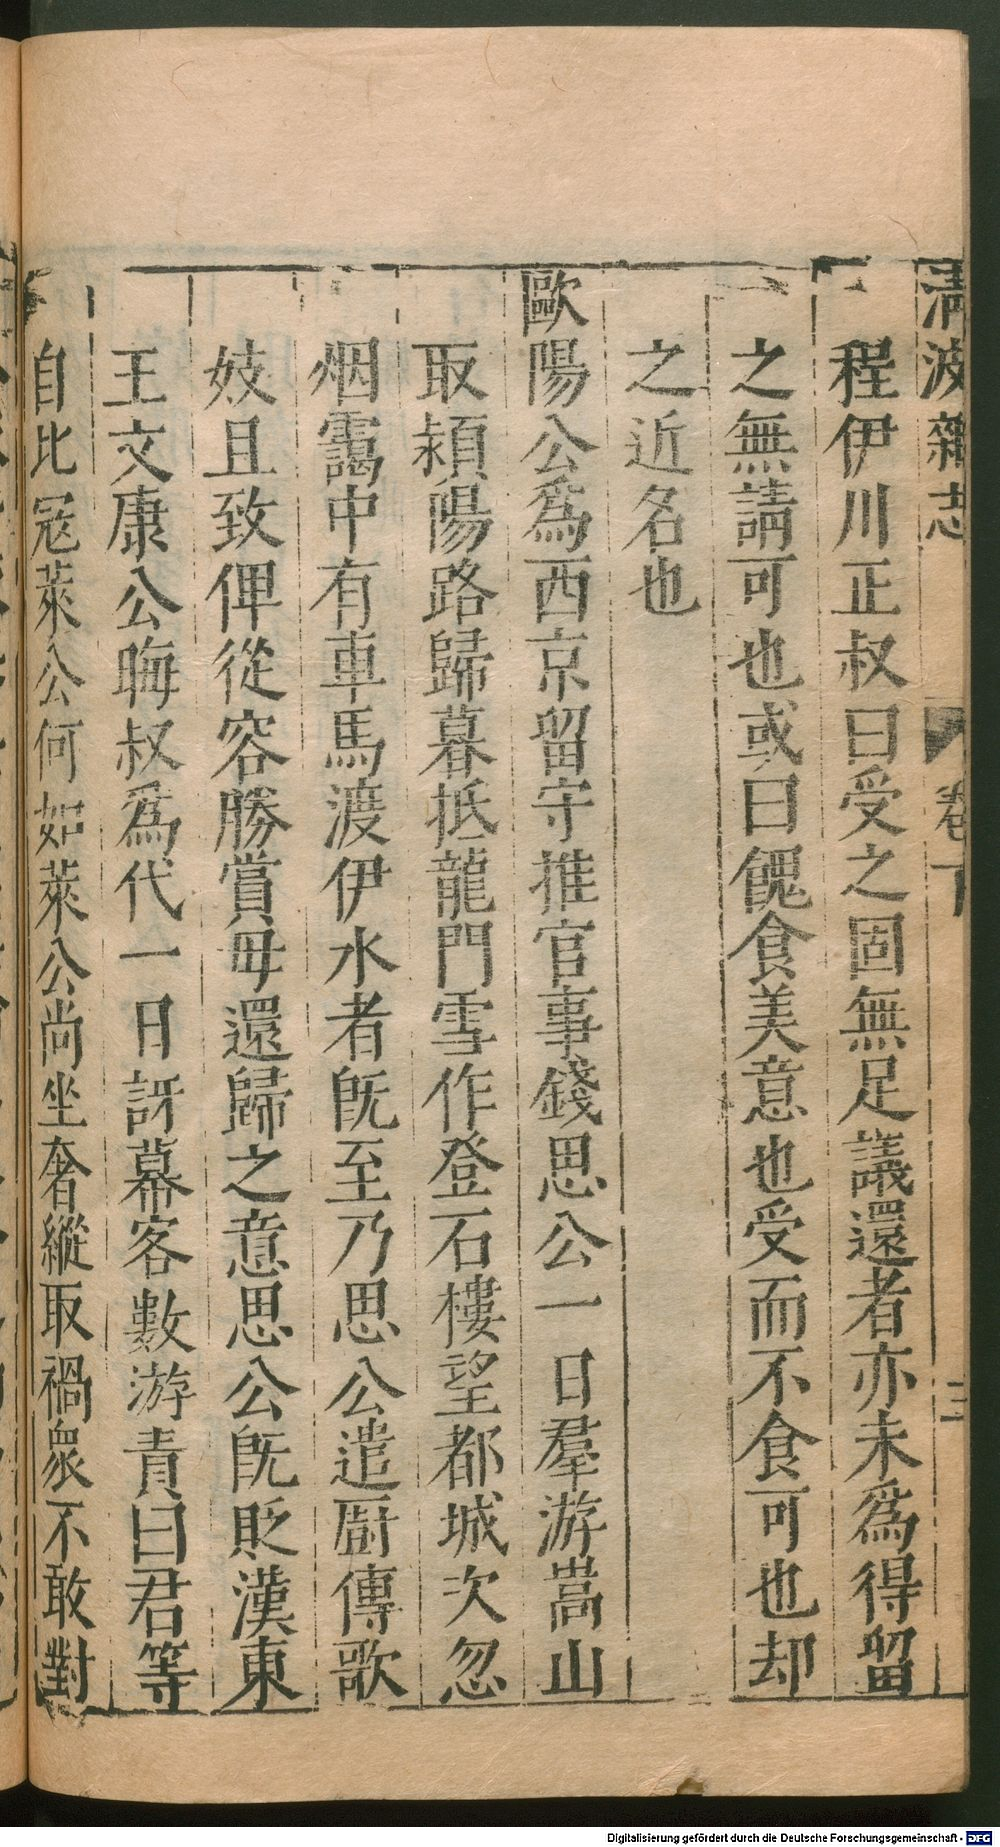 清波雜志 卷下 三
程伊川正叔曰受之固無足議還者亦未爲得留
之無請可也或曰餽食美意也受而不食可也却
之近名也
歐陽公爲西京留守推官事錢思公一日羣游嵩山
取潁陽路歸暮抵龍門雪作登石樓望都城次忽
烟靄中有車馬渡伊水者旣至乃思公遣厨傳歌
妓且致俾從容勝賞毋還歸之意思公旣貶漢東
王文康公晦叔爲代一日訝幕客數游責曰君等
自比寇萊公何如萊公尚坐奢縱取禍衆不敢對
Digitalisierung gefördert durch die Deutsche Forschungsgemeinschaft - DFG